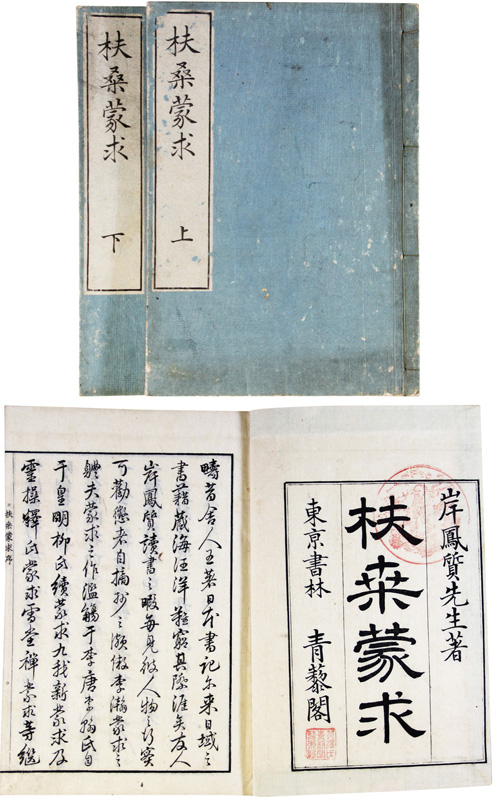 扶桑蒙求 上
扶桑蒙求 下
岸鳳質先生著
扶桒蒙求
東京書林 青藜閣
疇昔舍人王著日本書記尓来日域之
書籍蔵海汪洋難窮其際涯矣友人
岸鳳質讀書之暇毎見彼人物之行實
可勸懲者自摘抄之瀕倣李瀚蒙求之
軆夫蒙求之作濫觴于李唐李瀚氏自
于皇明柳氏續蒙求九我新蒙求及
靈操釋氏蒙求雪堂禅蒙求等継
扶桒蒙求序